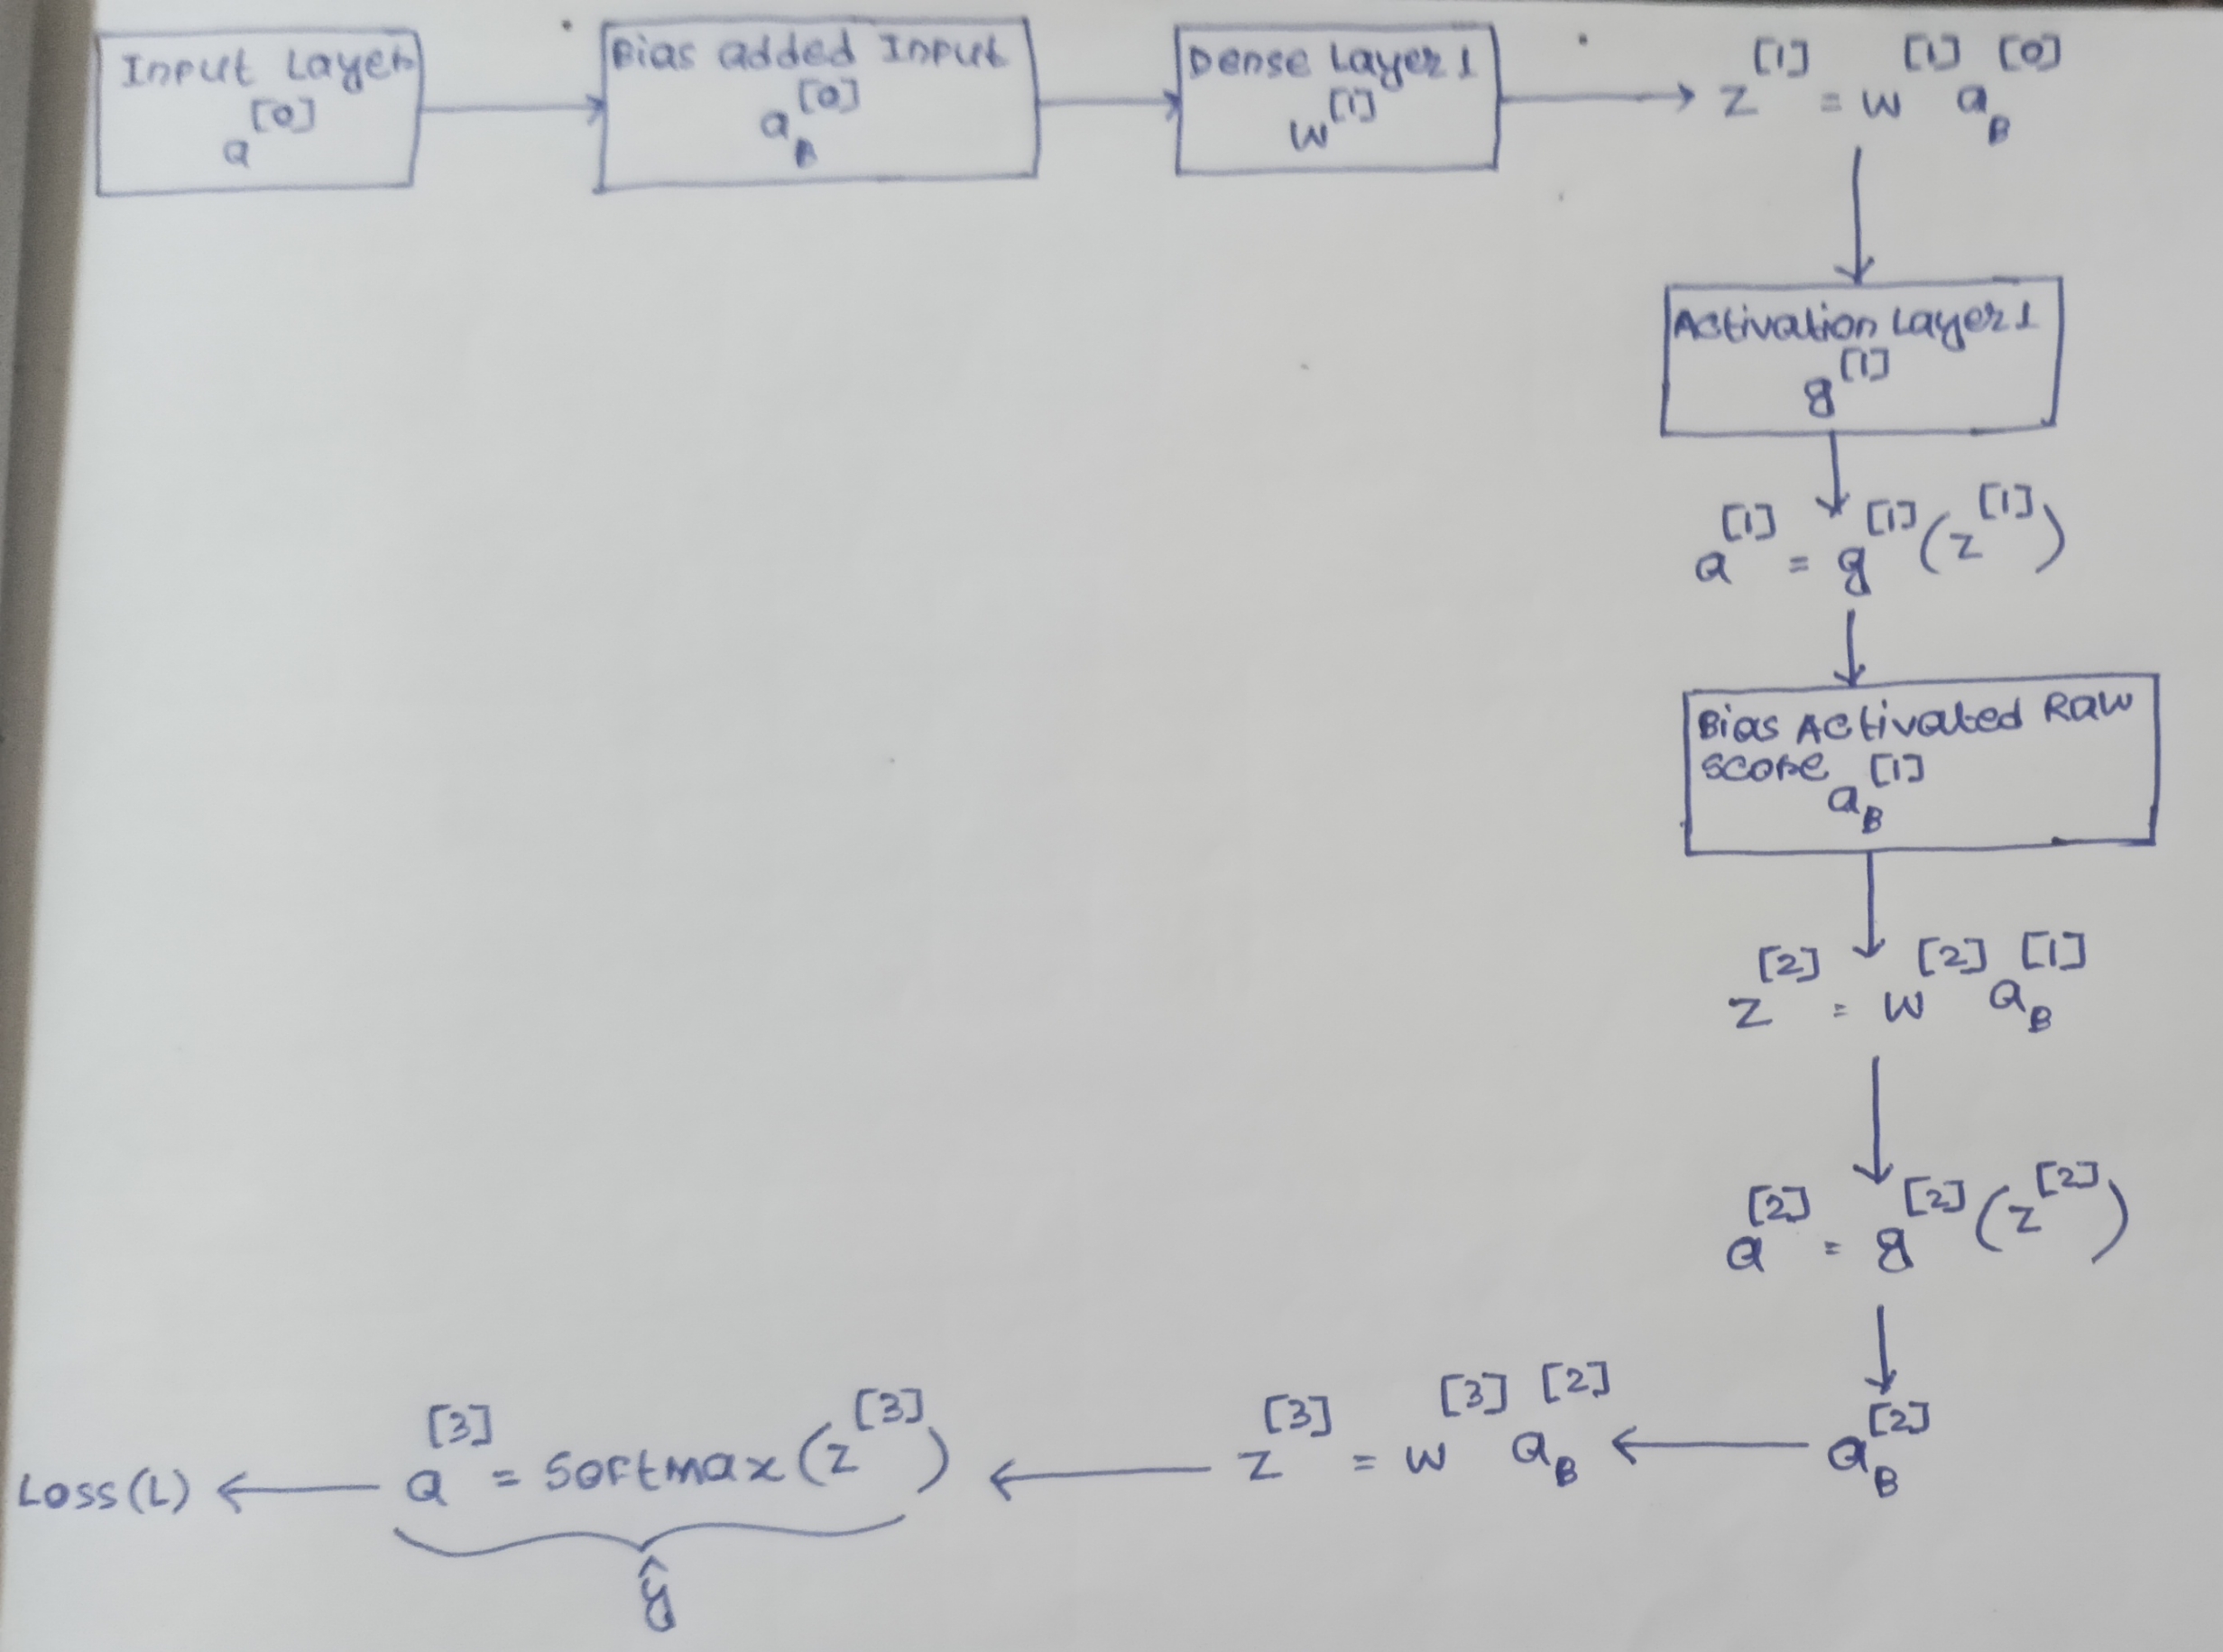 Input Layer
a^[0]
Bias added Input
a_B^[0]
Dense Layer 1
W^[1]
z^[1] = W^[1] a_B^[0]
Activation Layer 1
g^[1]
a^[1] = g^[1](z^[1])
Bias Activated Raw
score a_B^[1]
z^[2] = W^[2] a_B^[1]
a^[2] = g^[2](z^[2])
a_B^[2]
z^[3] = W^[3] a_B^[2]
a^[3] = Softmax(z^[3])
ŷ
Loss(L)